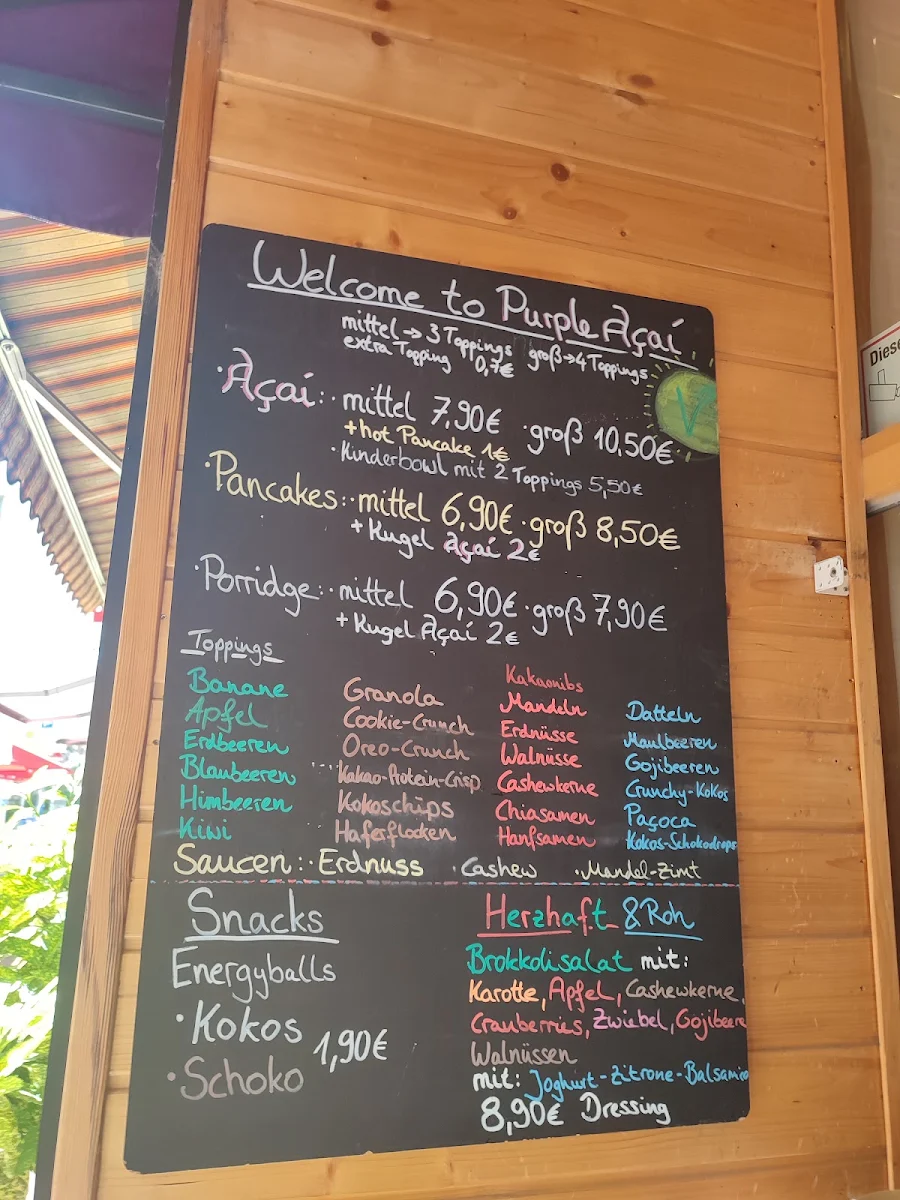 Welcome to Purple Açaí
mittel → 3 Toppings groß → 4 Toppings
extra Topping 0,7€
· Açaí: · mittel 7,90€ · groß 10,50€
+ hot Pancake 1€
· Kinderbowl mit 2 Toppings 5,50€
V
· Pancakes: · mittel 6,90€ · groß 8,50€
+ Kugel Açaí 2€
· Porridge: · mittel 6,90€ · groß 7,90€
+ Kugel Açaí 2€
Toppings
Banane
Apfel
Erdbeeren
Blaubeeren
Himbeeren
Kiwi
Granola
Cookie-Crunch
Oreo-Crunch
Kakao-Protein-Crisp
Kokoschips
Haferflocken
Kakaonibs
Mandeln
Erdnüsse
Walnüsse
Cashewkerne
Chiasamen
Hanfsamen
Datteln
Maulbeeren
Gojibeeren
Crunchy-Kokos
Paçoca
Kokos-Schokodrops
Saucen: · Erdnuss · Cashew · Mandel-Zimt
Snacks
Energyballs
· Kokos
1,90€
· Schoko
Herzhaft & Roh
Brokkolisalat mit:
Karotte, Apfel, Cashewkerne,
Cranberries, Zwiebel, Gojibeere
Walnüssen
mit: Joghurt-Zitrone-Balsamico
8,90€ Dressing
Diese